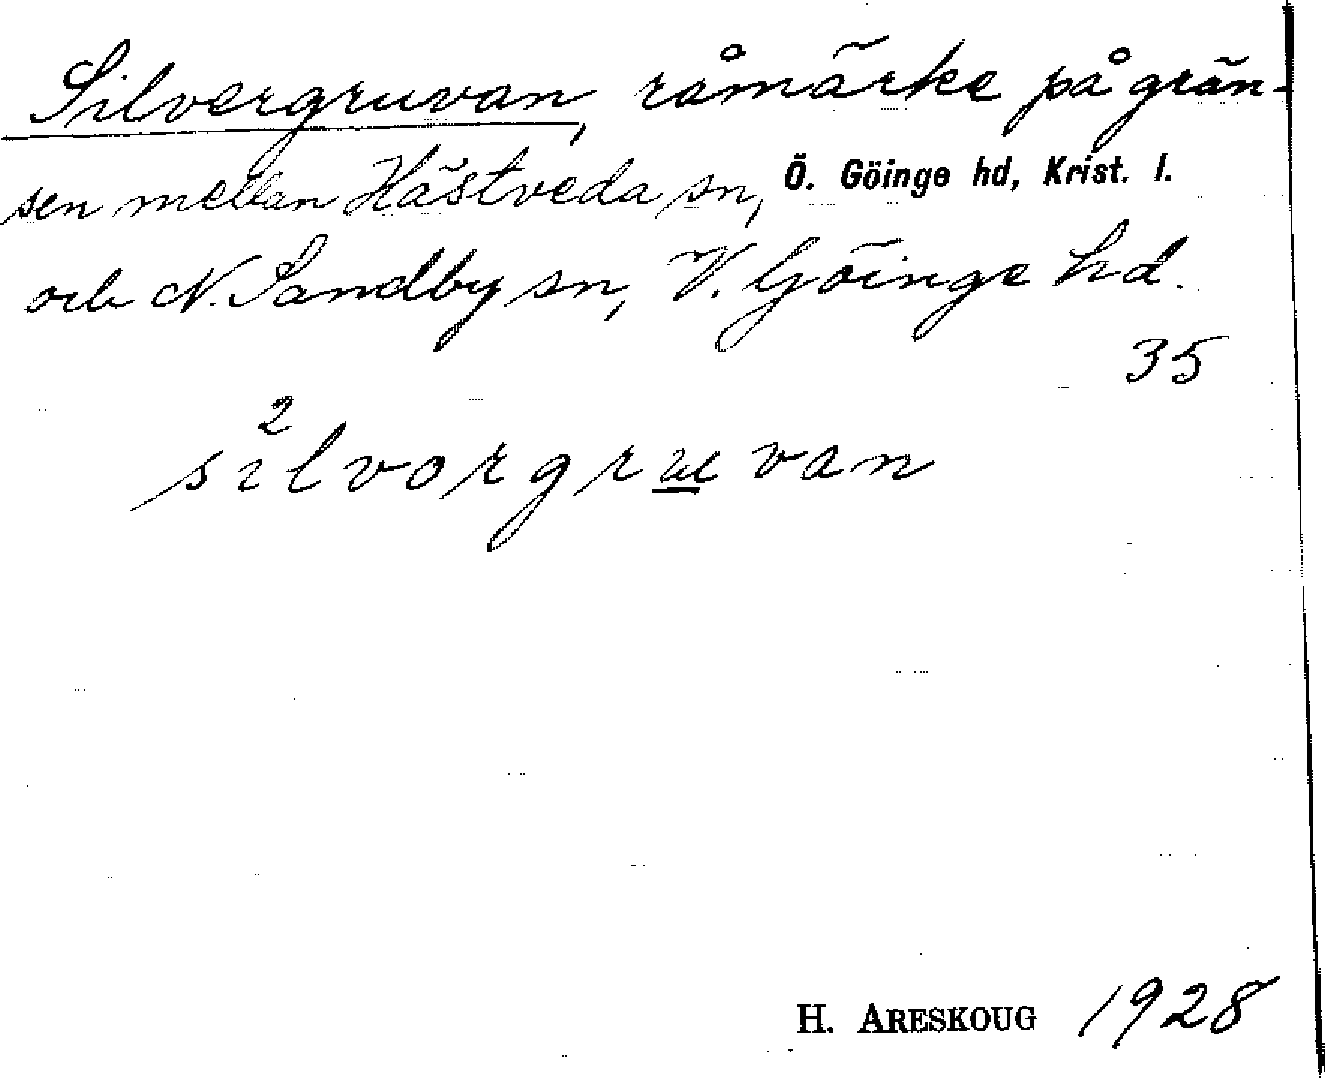 Silvergruvan, råmärke på grän-
sen mellan Hästveda sn, Ö. Göinge hd, Krist. l.
och N. Sandby sn, V. Göinge hd.
35
2
silvorgruvan
H. ARESKOUG 1928